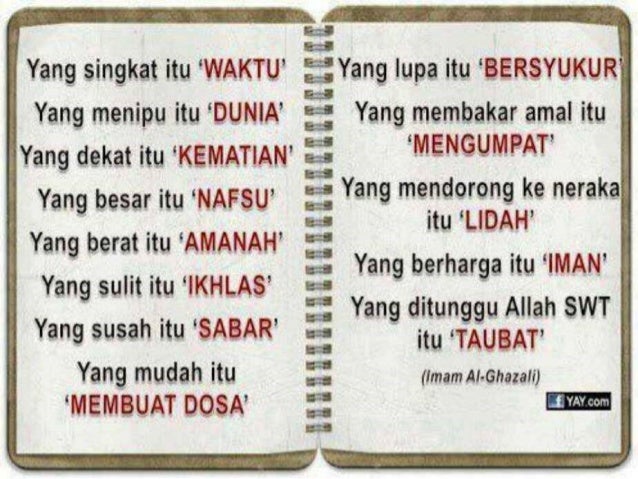 Yang singkat itu 'WAKTU'
Yang menipu itu 'DUNIA'
Yang dekat itu 'KEMATIAN'
Yang besar itu 'NAFSU'
Yang berat itu 'AMANAH'
Yang sulit itu 'IKHLAS'
Yang susah itu 'SABAR'
Yang mudah itu
'MEMBUAT DOSA'
Yang lupa itu 'BERSYUKUR'
Yang membakar amal itu
'MENGUMPAT'
Yang mendorong ke neraka
itu 'LIDAH'
Yang berharga itu 'IMAN'
Yang ditunggu Allah SWT
itu 'TAUBAT'
(Imam Al-Ghazali)
f YAY.com